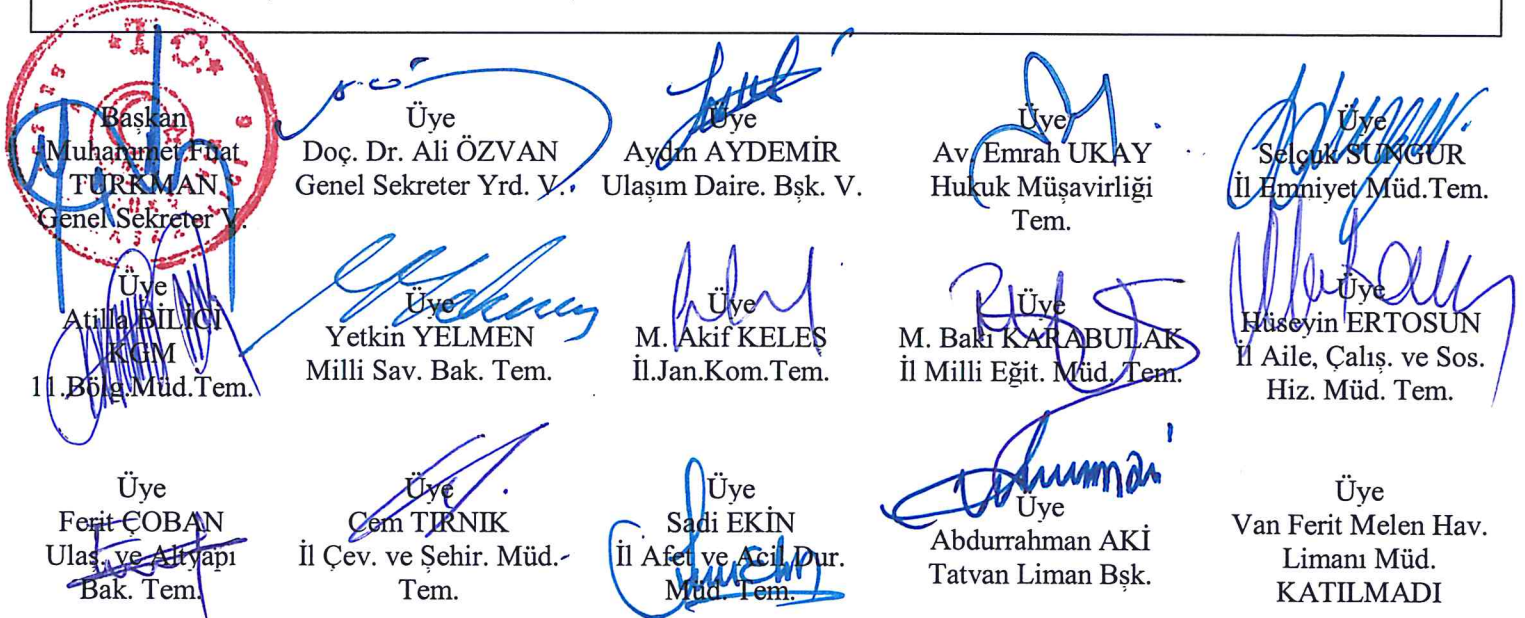 T.C.
Başkan
Muhammet Fuat
TÜRKMAN
Genel Sekreter V.
Üye
Doç. Dr. Ali ÖZVAN
Genel Sekreter Yrd. V.
Üye
Aydın AYDEMİR
Ulaşım Daire. Bşk. V.
Üye
Av. Emrah UKAY
Hukuk Müşavirliği
Tem.
Üye
Selçuk SUNGUR
İl Emniyet Müd.Tem.
Üye
Atilla BİLİCİ
KGM
11.Bölg.Müd.Tem.
Üye
Yetkin YELMEN
Milli Sav. Bak. Tem.
Üye
M. Akif KELEŞ
İl.Jan.Kom.Tem.
Üye
M. Baki KARABULAK
İl Milli Eğit. Müd. Tem.
Üye
Hüseyin ERTOSUN
İl Aile, Çalış. ve Sos.
Hiz. Müd. Tem.
Üye
Ferit ÇOBAN
Ulaş. ve Altyapı
Bak. Tem.
Üye
Cem TIRNIK
İl Çev. ve Şehir. Müd.
Tem.
Üye
Sadi EKİN
İl Afet ve Acil Dur.
Müd. Tem.
Üye
Abdurrahman AKİ
Tatvan Liman Bşk.
Üye
Van Ferit Melen Hav.
Limanı Müd.
KATILMADI